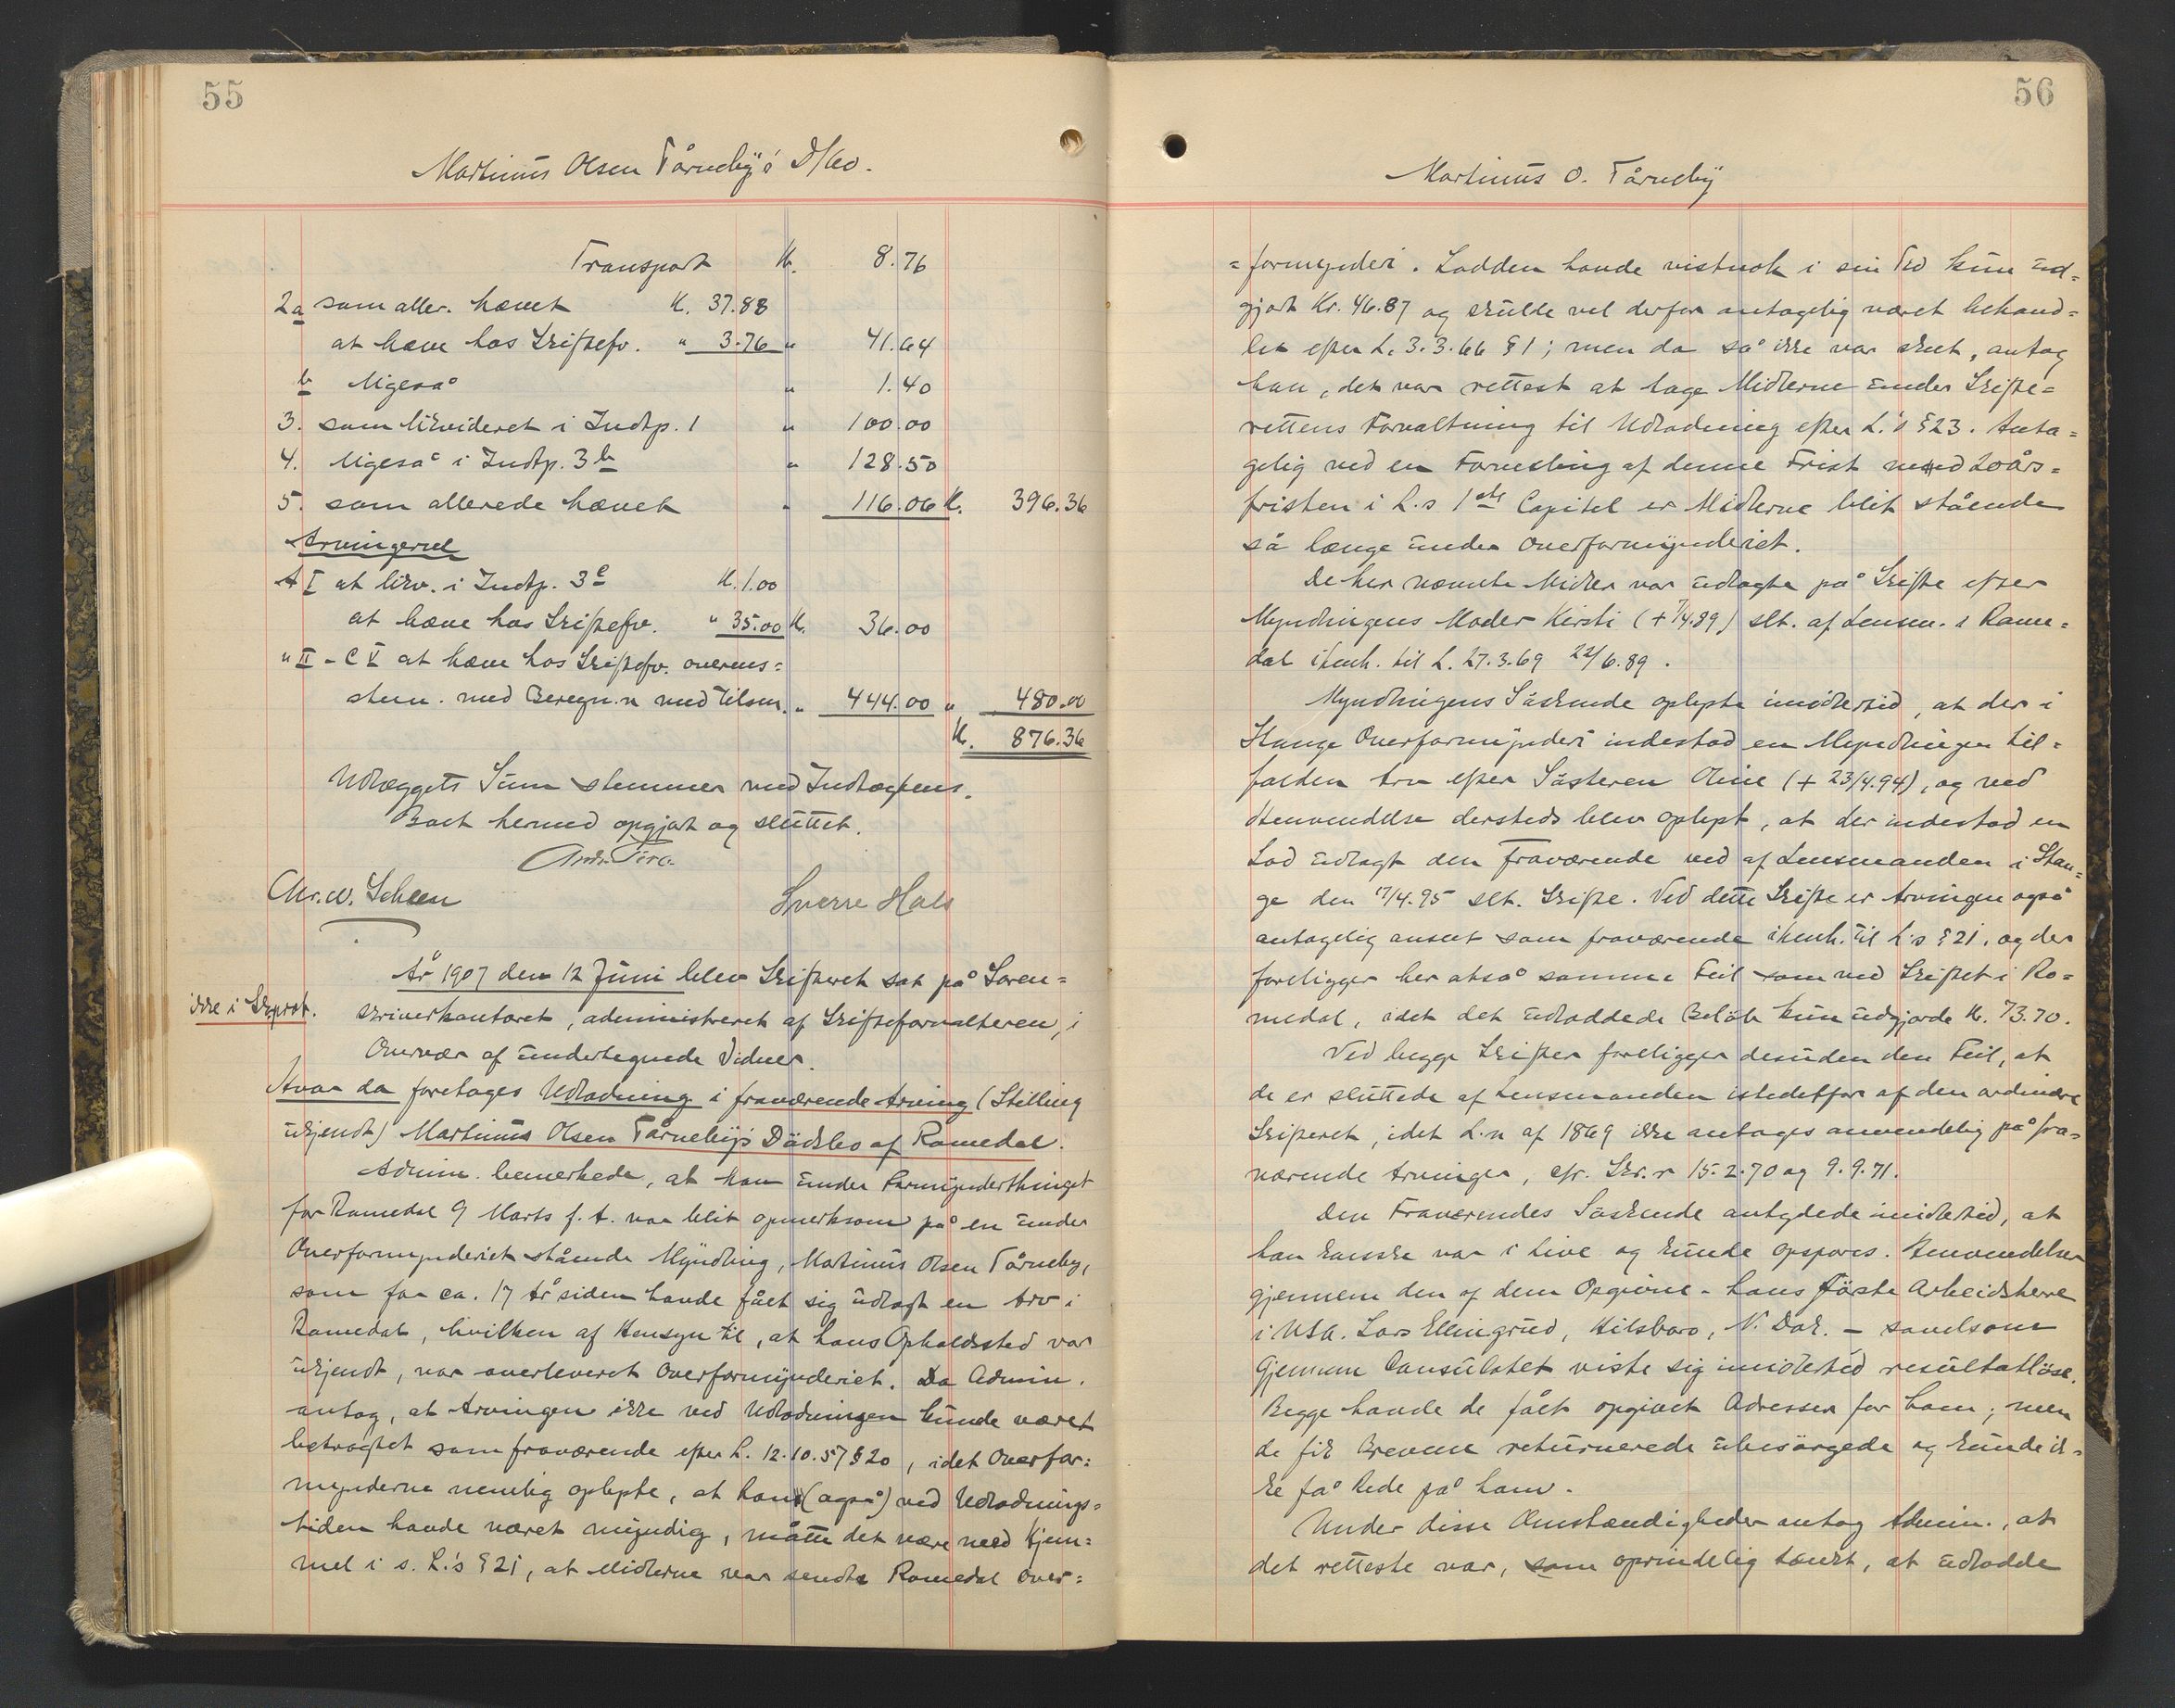 55
Martinus Olsen Tårneby's D/bo.
Transport Kr. 8.76
2a som aller. hævet K. 37.88
at hæve hos Skiftefv. " 3.76 " 41.64
b ligeså " 1.40
3. som likvideret i Indtp. 1 " 100.00
4. ligeså i Indtp. 3b " 128.50
5. som allerede hævet " 116.06 K. 396.36
Arvingerne
A I at likv. i Indtp. 3c K. 1.00
at hæve hos Skiftefv. " 35.00 K. 36.00
" II - C V at hæve hos Skiftefv. overens=
stem. med Beregn.n med tilsm. " 444.00 " 480.00
K. 876.36
Udlæggets Sum stemmer med Indtægtens.
Boet hermed opgjort og sluttet.
Chr. W. Scheen Sverre Hals
År 1907 den 12 Juni blev Skifteret sat på Soren=
ikke i Skprot. skriverkontoret, administreret af Skifteforvalteren, i
Overvær af undertegnede Vidner.
Hvor da foretages Udlodning i fraværende Arving (Stilling
ukjendt) Martinus Olsen Tårneby's Dödsbo af Romedal.
Admin. bemerkede, at han under Formynderthinget
for Romedal 9 Marts f. A. var blit opmerksom på en under
Overformynderiet stående Myndling, Martinus Olsen Tårneby,
som for ca. 17 År siden havde fået sig udlagt en Arv i
Romedal, hvilken af Hensyn til, at hans Opholdssted var
ukjendt, var overleveret Overformynderiet. Da Admin.
antog, at Arvingen ikke ved Udlodningen kunde været
betragtet som fraværende efter L. 12.10.57 § 20, idet Overfor=
mynderne nemlig oplyste, at han (også) ved Udlodnings=
tiden havde været myndig, måtte det være med Hjem=
mel i s. L.'s § 21, at Midlerne var sendte Romedal Over=
56
Martinus O. Tårneby
=formynderi. Lodden havde vistnok i sin Tid kun ud=
gjort Kr. 46.87 og skulde vel derfor antagelig været behand=
let efter L. 3.3.66 § 1; men da så ikke var skeet, antog
han, det var rettest at tage Midlerne under Skifte=
rettens Forvaltning til Udlodning efter L.'s § 23. Anta=
gelig ved en Forveksling af denne Frist med 20års=
fristen i L.s 1ste Capitel er Midlerne blit stående
så længe under Overformynderiet.
De her nævnte Midler var udlagte på Skifte efter
Myndlingens Moder Kirsti (+ 7/4.89) slt. af Lensm. i Rome=
dal i henh. til L. 27.3.69 22/6.89.
Myndlingens Söskende oplyste imidlertid, at der i
Stange Overformynderi indestod en Myndlingen til=
falden Arv efter Sösteren Oline (+ 23/4.94), og ved
Henvendelse dersteds blev oplyst, at der indestod en
Lod udlagt den Fraværende ved af Lensmanden i Stan=
ge den 17/4.95 slt. Skifte. Ved dette Skifte er Arvingen også
antagelig anseet som fraværende i henh. til L's § 21, og der
foreligger her altså samme Feil som ved Skiftet i Ro=
medal, idet det udloddede Belöb kun udgjorde K. 73.70.
Ved begge Skifter foreligger desuden den Feil, at
de er sluttede af Lensmanden istedetfor af den ordinære
Skifteret, idet L.n af 1869 ikke antages anvendelig på fra=
værende Arvinger, cfr. Skr.r 15.2.70 og 9.9.71.
Den Fraværendes Söskende antydede imidlertid, at
han kanske var i Live og kunde opspores. Henvendelser
gjennem den af dem Opgivne - hans förste Arbeidsherre
i USA. Lars Ellingrud, Hilsboro, N. Dak. - såvelsom
Gjennem Consulatet viste sig imidlertid resultatlöse.
Begge havde de fået opgivet Adresser for ham; men
de fik Brevene returnerede ubesörgede og kunde ik=
ke få Rede på ham.
Under disse Omstændigheder antog Admin., at
det retteste var, som oprindelig tænkt, at udlodde